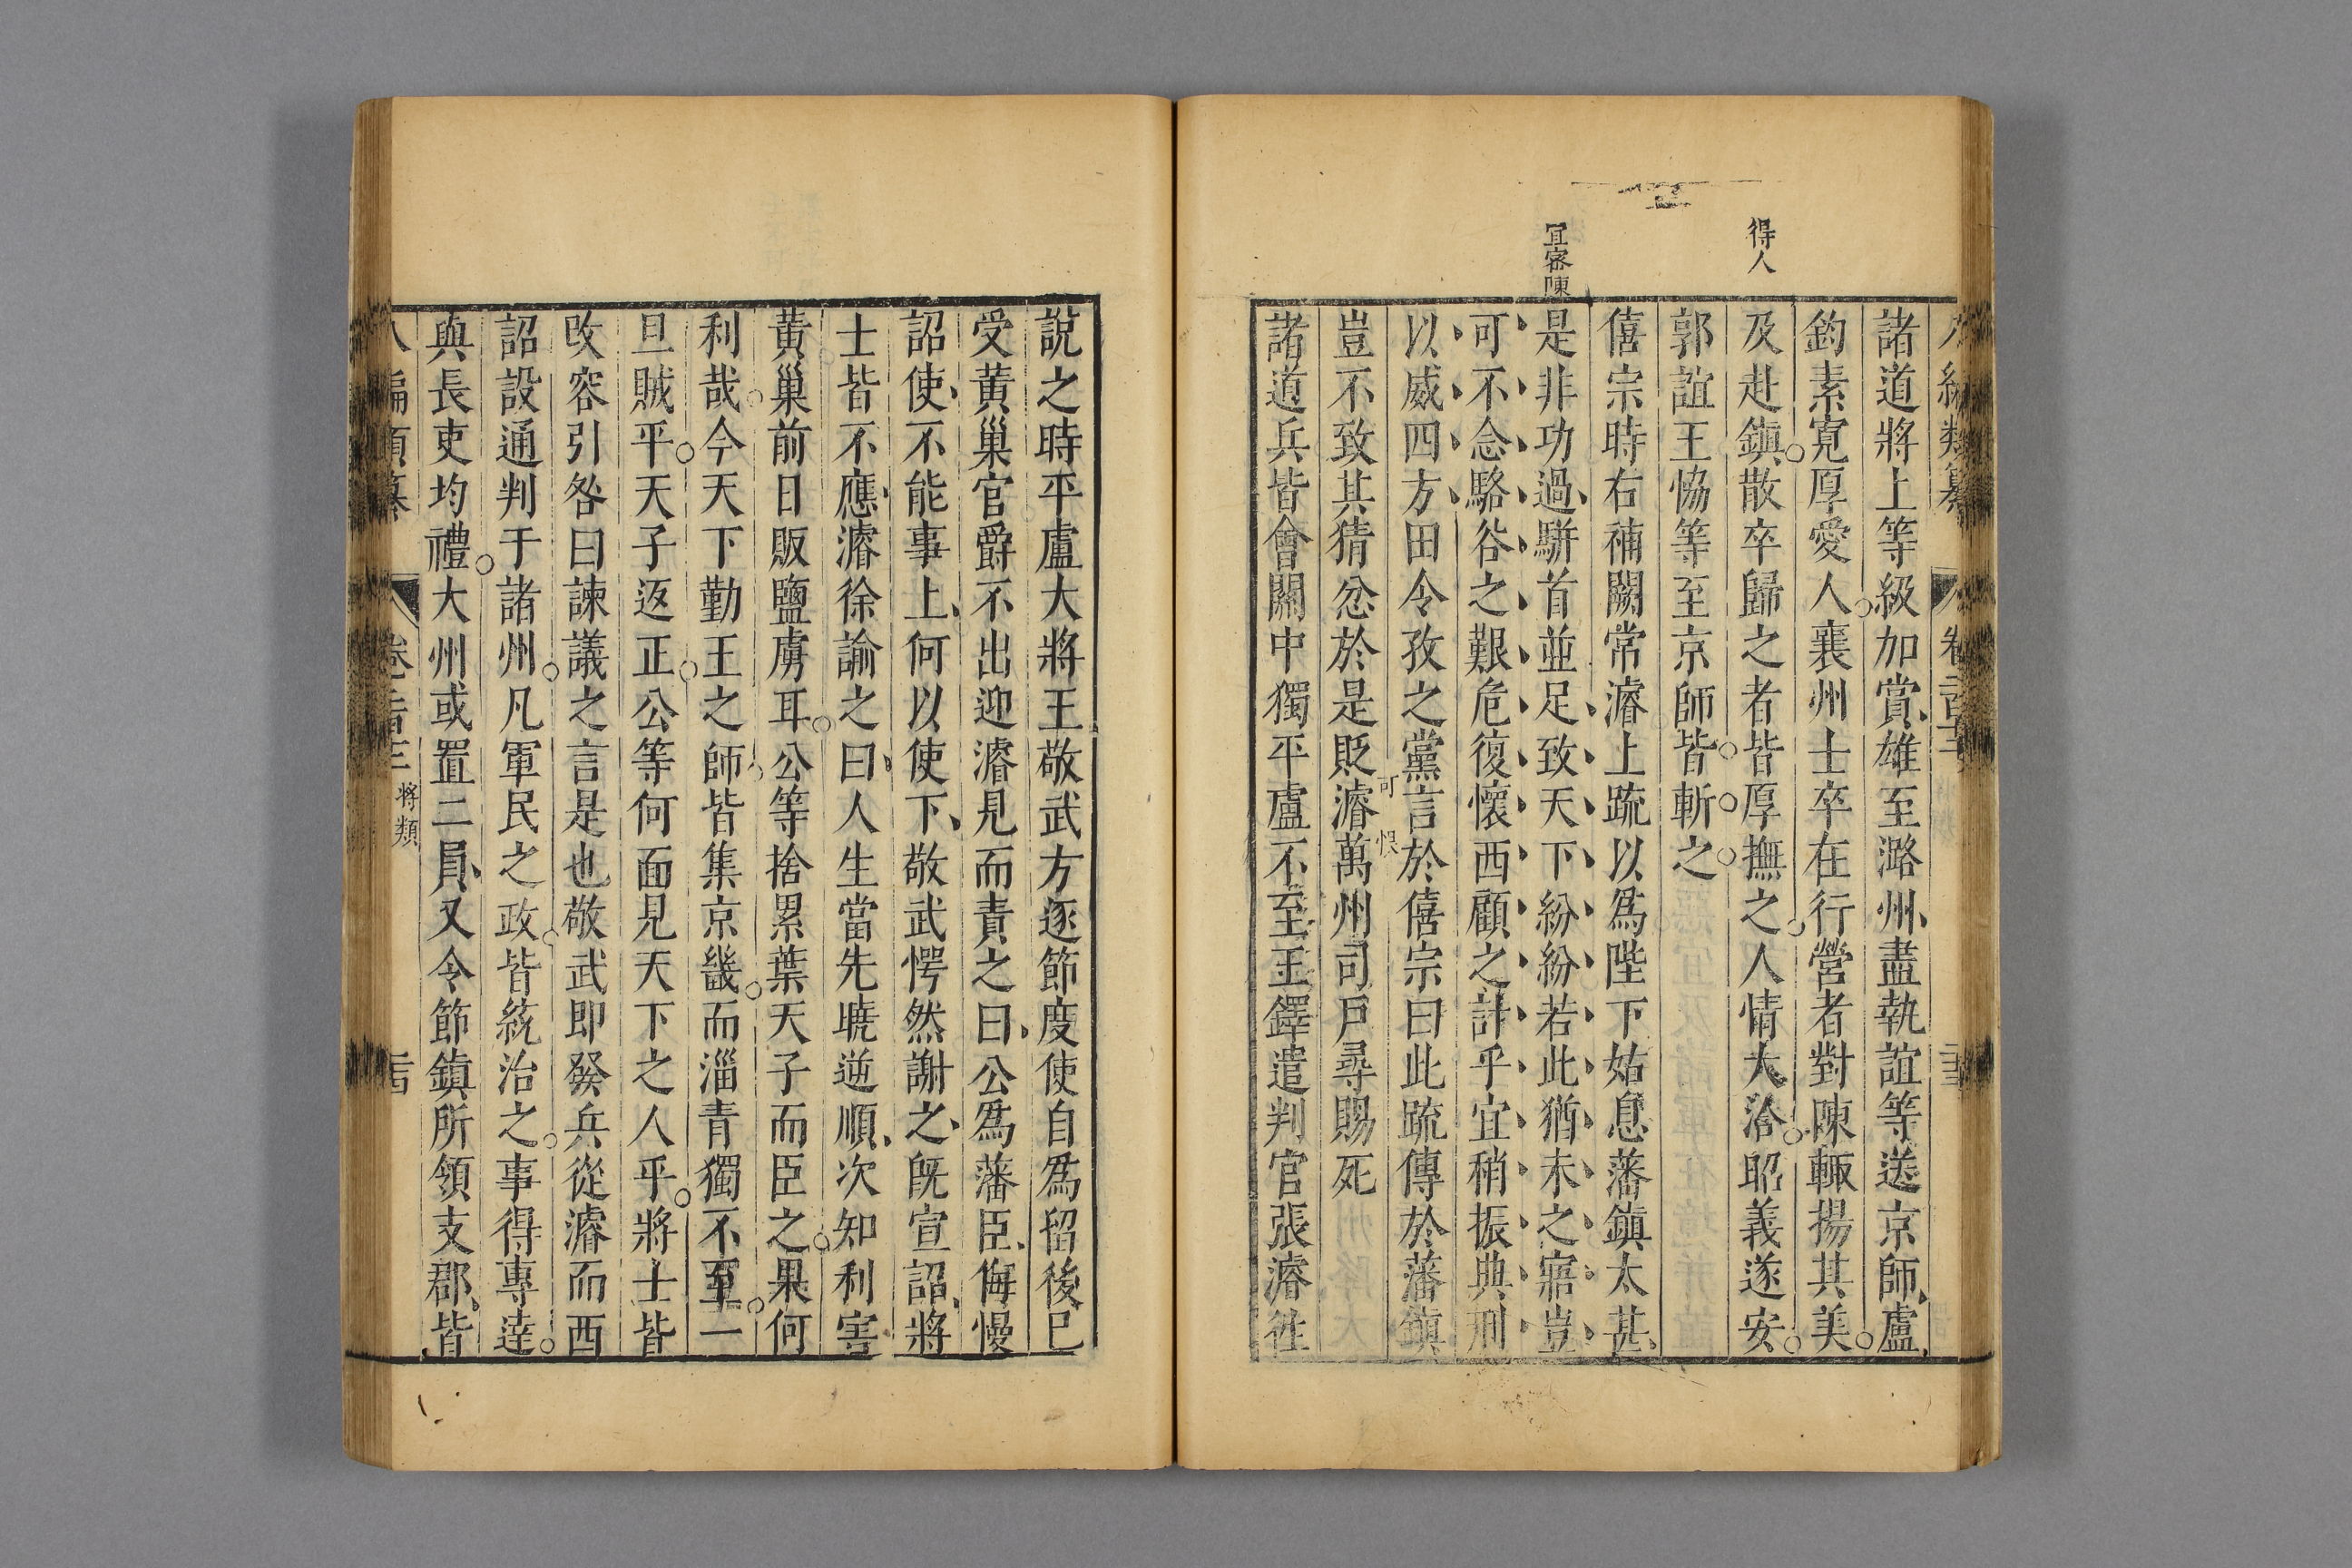 得人
宜密陳
諸道將上等級加賞雄至潞州盡執誼等送京師盧
鈞素寬厚愛人襄州士卒在行營者對陳輙揚其美
及赴鎮散卒歸之者皆厚撫之人情大洽昭義遂安
郭誼王恊等至京師皆斬之
僖宗時右補闕常濬上䟽以為陛下姑息藩鎮太甚
是非功過駢首並足致天下紛紛若此猶未之寤豈
可不念駱谷之艱危復懷西顧之計乎宜稍振典刑
以威四方田令孜之黨言於僖宗曰此䟽傳於藩鎮
可恨
豈不致其猜忿於是貶濬萬州司戶尋賜死
諸道兵皆會關中獨平盧不至王鐸遣判官張濬徃
說之時平盧大將王敬武方逐節度使自為留後已
受黃巢官爵不出迎濬見而責之曰公為藩臣侮慢
詔使不能事上何以使下敬武愕然謝之既宣詔將
士皆不應濬徐諭之曰人生當先曉逆順次知利害
黃巢前日販鹽虜耳公等捨累葉天子而臣之果何
利哉今天下勤王之師皆集京畿而淄青獨不至一
旦賊平天子返正公等何面見天下之人乎將士皆
改容引咎曰諫議之言是也敬武即發兵從濬而西
詔設通判于諸州凡軍民之政皆統治之事得專達
與長吏均禮大州或置二員又令節鎮所領支郡皆
八編類纂 卷二百三 將類